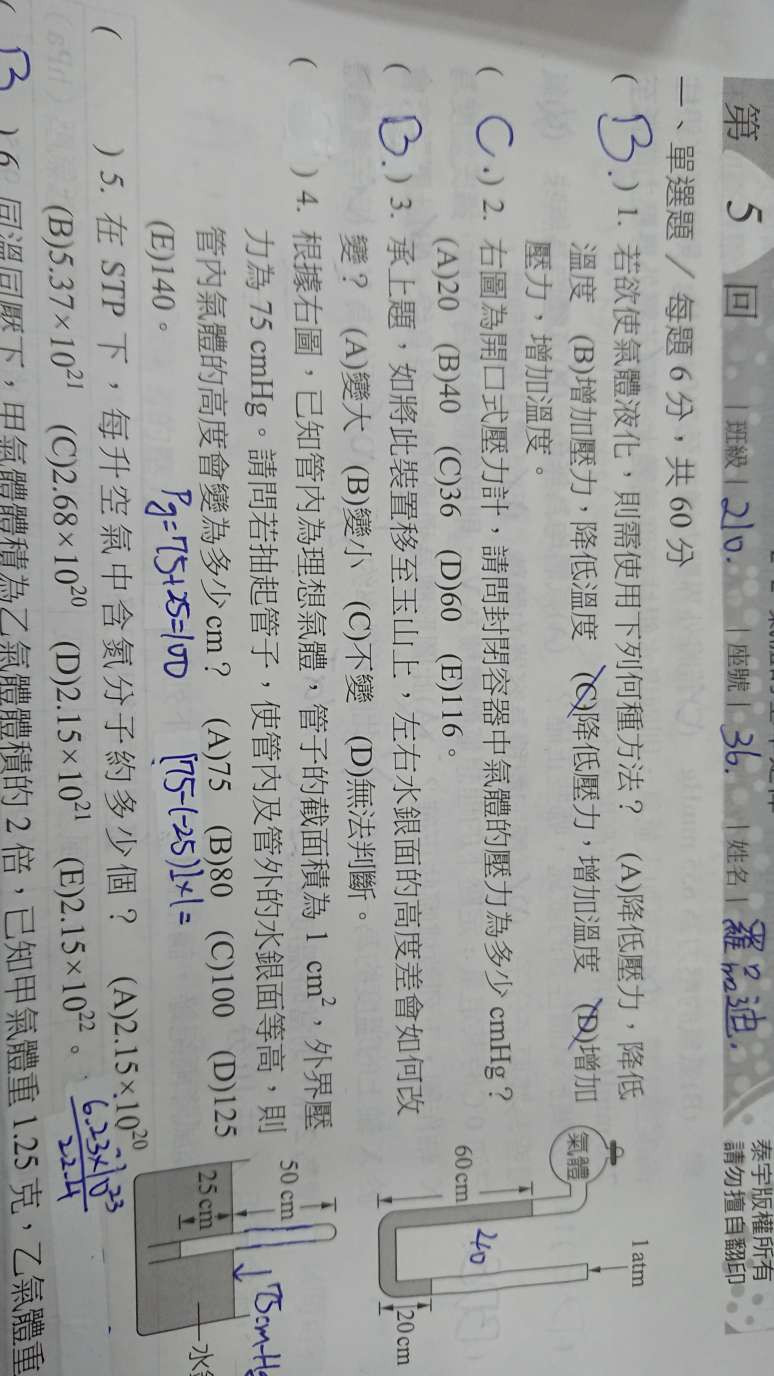 第 5 回 班級 210. 座號 36. 姓名 羅口迪.
泰宇版權所有
請勿擅自翻印
一、單選題／每題 6 分，共 60 分
( B. ) 1. 若欲使氣體液化，則需使用下列何種方法？ (A)降低壓力，降低
溫度 (B)增加壓力，降低溫度 (C)降低壓力，增加溫度 (D)增加
壓力，增加溫度。
( C. ) 2. 右圖為開口式壓力計，請問封閉容器中氣體的壓力為多少 cmHg？
(A)20 (B)40 (C)36 (D)60 (E)116。
氣體
1 atm
60 cm
40
20 cm
( B. ) 3. 承上題，如將此裝置移至玉山上，左右水銀面的高度差會如何改
變？ (A)變大 (B)變小 (C)不變 (D)無法判斷。
( ) 4. 根據右圖，已知管內為理想氣體，管子的截面積為 1 cm²，外界壓
力為 75 cmHg。請問若抽起管子，使管內及管外的水銀面等高，則
管內氣體的高度會變為多少 cm？ (A)75 (B)80 (C)100 (D)125
(E)140。
Pg=75+25=100 [75-(-25)]×1=
50 cm
25 cm
75cm-Hg
( ) 5. 在 STP 下，每升空氣中含氮分子約多少個？ (A)2.15×10²⁰
(B)5.37×10²¹ (C)2.68×10²⁰ (D)2.15×10²¹ (E)2.15×10²²。
6.23×10²³
22.4
( B ) 6. 同溫同壓下，甲氣體體積為乙氣體體積的 2 倍，已知甲氣體重 1.25 克，乙氣體重